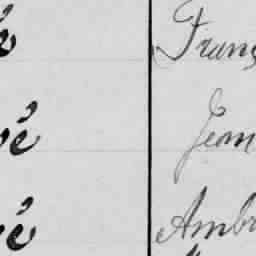 é Franç
vé Jean
vé Ambr